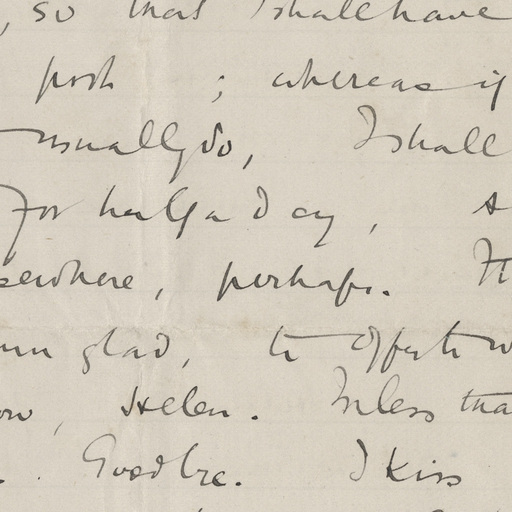 , so that I shall have
post ; whereas if
usually do, I shall
for half a day, s
sewhere, perhaps. It
um glad, to offer to w
ow, Helen. Unless tha
. Goodbye. I kiss